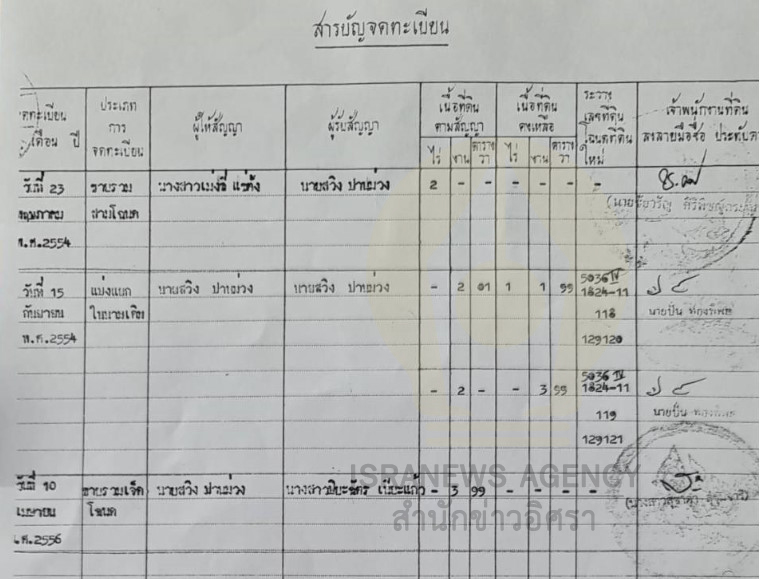 สารบัญจดทะเบียน
จดทะเบียน
เดือน ปี
ประเภท
การ
จดทะเบียน
ผู้ให้สัญญา
ผู้รับสัญญา
เนื้อที่ดิน
ตามสัญญา
ไร่ งาน ตาราง
วา
เนื้อที่ดิน
คงเหลือ
ไร่ งาน ตาราง
วา
ระวาง
เลขที่ดิน
โฉนดที่ดิน
ใหม่
เจ้าพนักงานที่ดิน
ลงลายมือชื่อ ประทับตรา
วันที่ 23 ขายรวม นายสวิง ปานม่วง 2 - - - - - -
พฤษภาคม สามโฉนด
พ.ศ.2554
วันที่ 15 แบ่งแยก นายสวิง ปานม่วง นายสวิง ปานม่วง - 2 01 1 1 99 5036 IV
1824-11
กันยายน ในนามเดิม 118 นายปั่น
พ.ศ.2554 129120
- 2 - - 3 99 5036 IV
1824-11
119 นายปั่น
129121
วันที่ 10 ขายรวมเจ็ด นายสวิง ปานม่วง นางสาวปิยะฉัตร - 3 99 - - - -
เมษายน โฉนด
พ.ศ.2556
ISRANEWS AGENCY
สำนักข่าวอิศรา